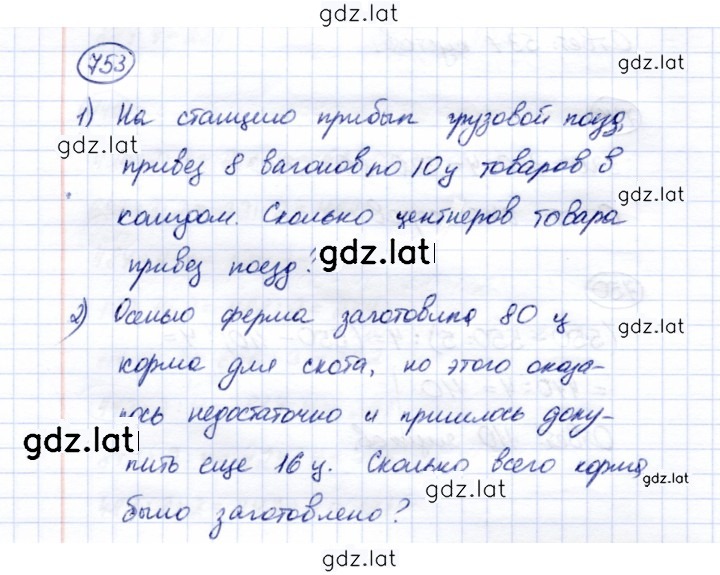 gdz.lat
753
gdz.lat
1) На станцию прибыл грузовой поезд,
gdz.lat
привез 8 вагонов по 10 ц товаров в
gdz.lat
каждом. Сколько центнеров товара
gdz.lat
привез поезд?
2) Осенью ферма заготовила 80 ц
gdz.lat
корма для скота, но этого оказа-
лось недостаточно и пришлось доку-
gdz.lat
пить еще 16 ц. Сколько всего корма
gdz.lat
gdz.lat
было заготовлено?
gdz.lat